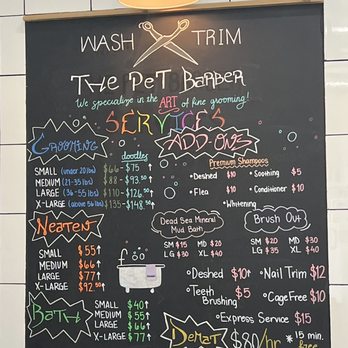 WASH TRIM
THE PET BARBER
We specialize in the ART of fine grooming!
SERVICES
GROOMING
doodles
SMALL (under 20 lbs) $66 - $75
MEDIUM (21-35 lbs) $88 - $93.50
LARGE (36-55 lbs) $110 - $126.50↑
X-LARGE (above 56 lbs) $135 - $148.50↑
ADD-ONS
Premium Shampoos
•Deshed $10 •Soothing $5
•Flea $10 •Conditioner $10
•Whitening
NEATEN
SMALL $55↑
MEDIUM $66↑
LARGE $77↑
X-LARGE $92.50↑
Dead Sea Mineral
Mud Bath
SM $15 MD $20
LG $30 XL $40
Brush Out
SM $20 MD $30
LG $35 XL $40
•Deshed $10+ •Nail Trim $12
•Teeth
Brushing $5 •Cage Free $10
•Express Service $15
BATH
SMALL $40↑
MEDIUM $55↑
LARGE $66↑
X-LARGE $77↑
DEMAT $80/hr * 15 min.
free